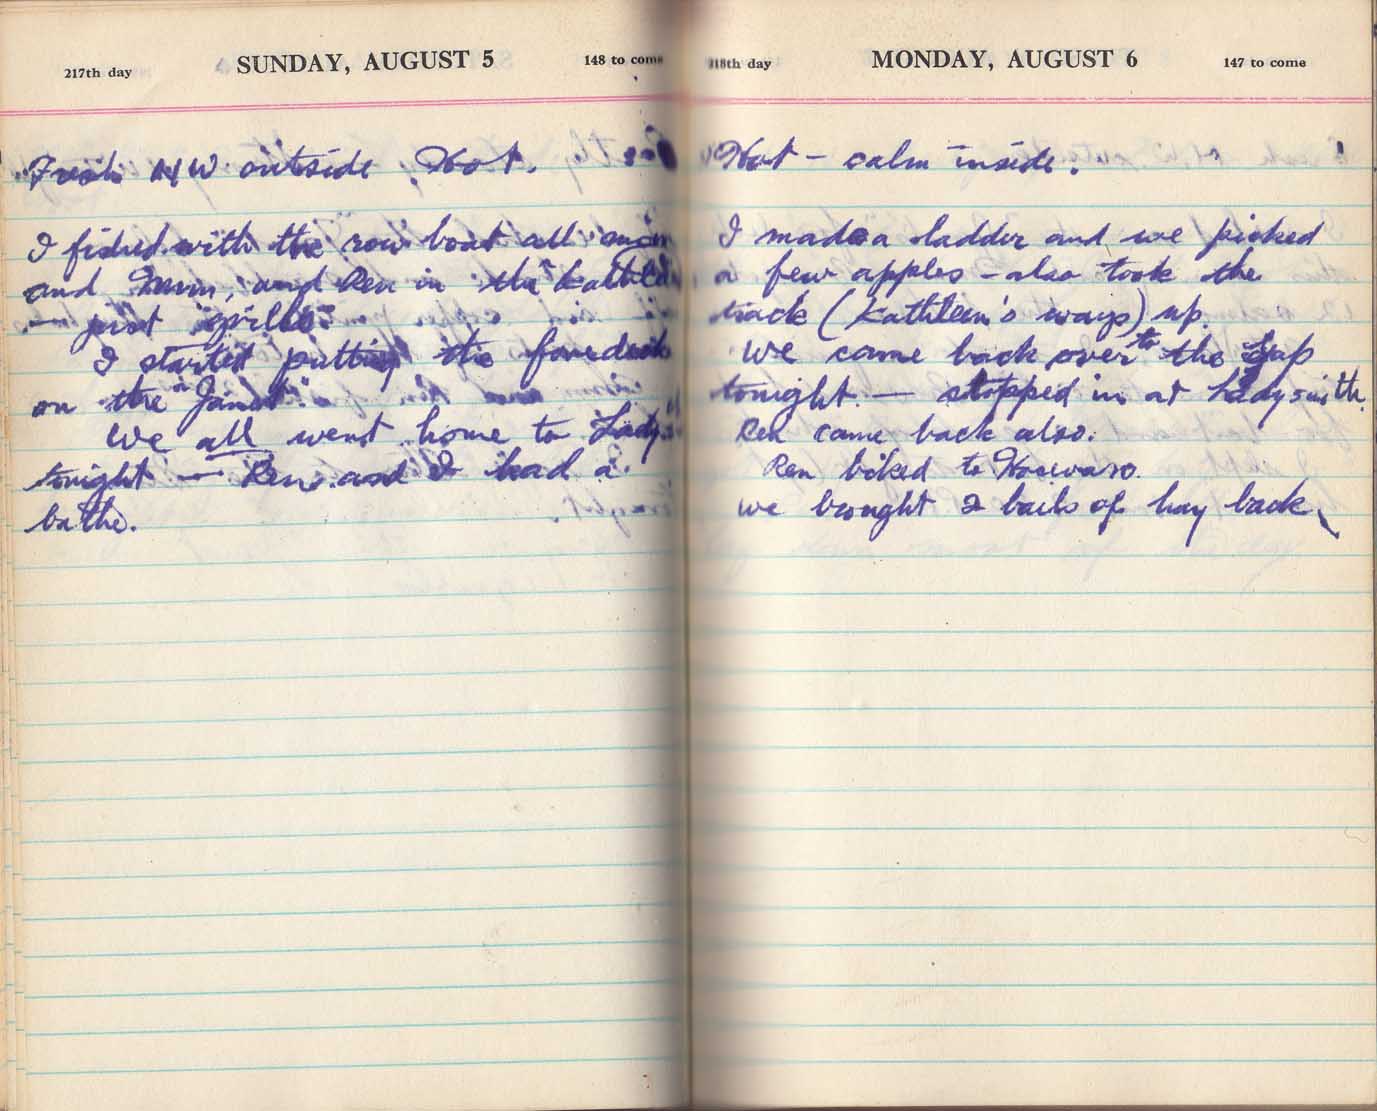 217th day SUNDAY, AUGUST 5 148 to come
Fresh NW outside. Hot.
I fished with the row boat all
and and Ren in the "Kathleen
— just grilse.
I started putting the foredeck
on the "Janet".
We all went home to Lady.
tonight — Ren and I had a
bathe.
218th day MONDAY, AUGUST 6 147 to come
Hot — calm inside.
I made a ladder and we picked
a few apples — also took the
track (Kathleen's ways) up.
We came back over to the Gap
tonight — stopped in at Ladysmith.
Ren came back also.
Ren biked to
we brought 2 bails of hay back